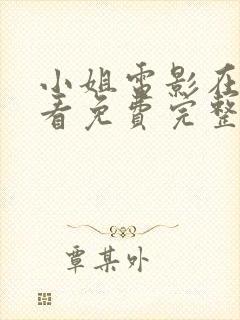 小姐電影在
看免費完整
覃某外